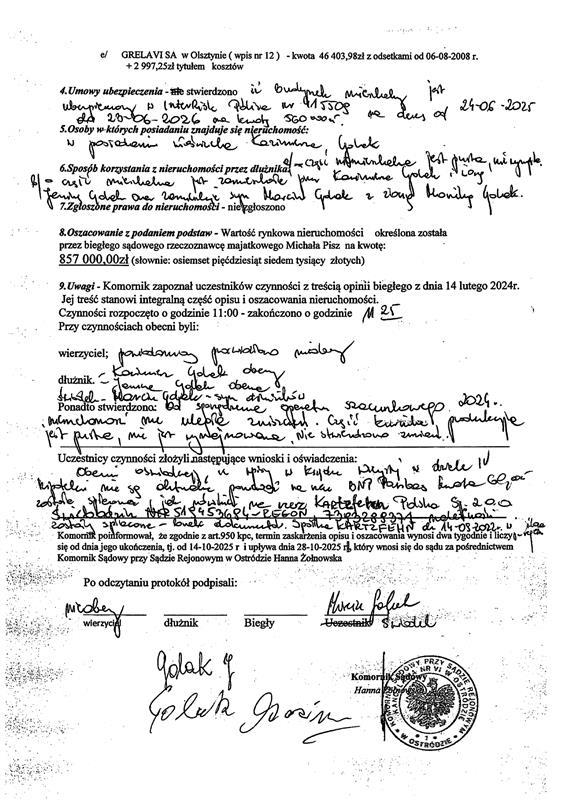 e/ GRELAVI SA w Olsztynie ( wpis nr 12 ) - kwota 46 403,98zł z odsetkami od 06-08-2008 r.
+ 2 997,25zł tytułem kosztów
4.Umowy ubezpieczenia - nie stwierdzono iż budynek mieszkalny jest
ubezpieczony w InterRisk Polisa nr 915509 na okres od 24-06-2025
do 23-06-2026 na kwotę 560 000zł
5.Osoby w których posiadaniu znajduje się nieruchomość:
w posiadaniu Kazimierza, Golak
6.Sposób korzystania z nieruchomości przez dłużnika: a/ - część niemieszkalna jest pusta,
b/ - część mieszkalna jest zamieszkała przez Kazimierza Golak i żonę
Janinę Golak oraz syn Marcin Golak z żoną Moniką Golak.
7.Zgłoszone prawa do nieruchomości - nie zgłoszono
8.Oszacowanie z podaniem podstaw - Wartość rynkowa nieruchomości określona została
przez biegłego sądowego rzeczoznawcę majątkowego Michała Pisz na kwotę:
857 000,00zł (słownie: osiemset pięćdziesiąt siedem tysięcy złotych)
9.Uwagi - Komornik zapoznał uczestników czynności z treścią opinii biegłego z dnia 14 lutego 2024r.
Jej treść stanowi integralną część opisu i oszacowania nieruchomości.
Czynności rozpoczęto o godzinie 11:00 - zakończono o godzinie 11 25
Przy czynnościach obecni byli:
wierzyciel; powiadomiony prawidłowo nieobecny
dłużnik. - Kazimierz Golak obecny
- Janina Golak obecna
świadek - Marcin Golak - syn dłużników
Ponadto stwierdzono: Od sporządzenia operatu szacunkowego 2024r.
nieruchomość nie uległa zmianom. Część produkcyjna
jest pusta, nie jest wynajmowana, nie stwierdzono zmian.
Uczestnicy czynności złożyli następujące wnioski i oświadczenia:
Obecni oświadczają iż wpisy w Księdze Wieczystej w dziale IV
hipoteki nie są aktualne ponieważ na rzecz BNP Paribas kwota
została spłacona i jak również na rzecz Kartzfehn Polska Sp. z o.o.
zostały spłacone - brak dokumentów. Spółka KARTZFEHN
Komornik poinformował, że zgodnie z art.950 kpc, termin zaskarżenia opisu i oszacowania wynosi dwa tygodnie i liczy
się od dnia jego ukończenia, tj. od 14-10-2025 r i upływa dnia 28-10-2025 r, który wnosi się do sądu za pośrednictwem
Komornik Sądowy przy Sądzie Rejonowym w Ostródzie Hanna Żołnowska
Po odczytaniu protokół podpisali:
nieobecny Marcin Golak
wierzyciel dłużnik Biegły Uczestnik Świadek
Golak J
Golak
Komornik Sądowy
Hanna Żołnowska
KOMORNIK SĄDOWY PRZY SĄDZIE REJONOWYM
W OSTRÓDZIE
KANCELARIA NR VI W OSTRÓDZIE